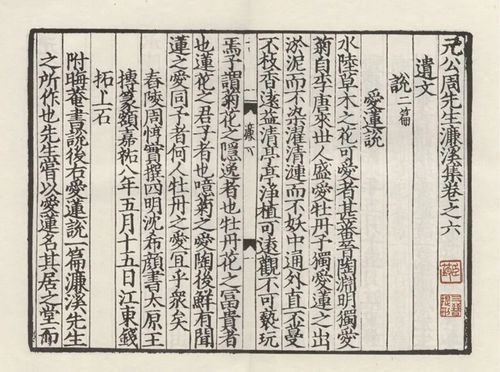 元公周先生濂溪集卷之六
遺文
說二篇
愛蓮說
水陸草木之花可愛者甚蕃晉陶淵明獨愛
菊自李唐來世人盛愛牡丹予獨愛蓮之出
淤泥而不染濯清漣而不妖中通外直不蔓
不枝香遠益清亭亭淨植可遠觀不可褻玩
焉予謂菊花之隱逸者也牡丹花之富貴者
也蓮花之君子者也噫菊之愛陶後鮮有聞
蓮之愛同予者何人牡丹之愛宜乎衆矣
舂陵周惇實撰四明沈希顏書太原王
摶篆額嘉祐八年五月十五日江東錢
拓上石
附晦菴書說後右愛蓮說一篇濂溪先生
之所作也先生嘗以愛蓮名其居之堂而